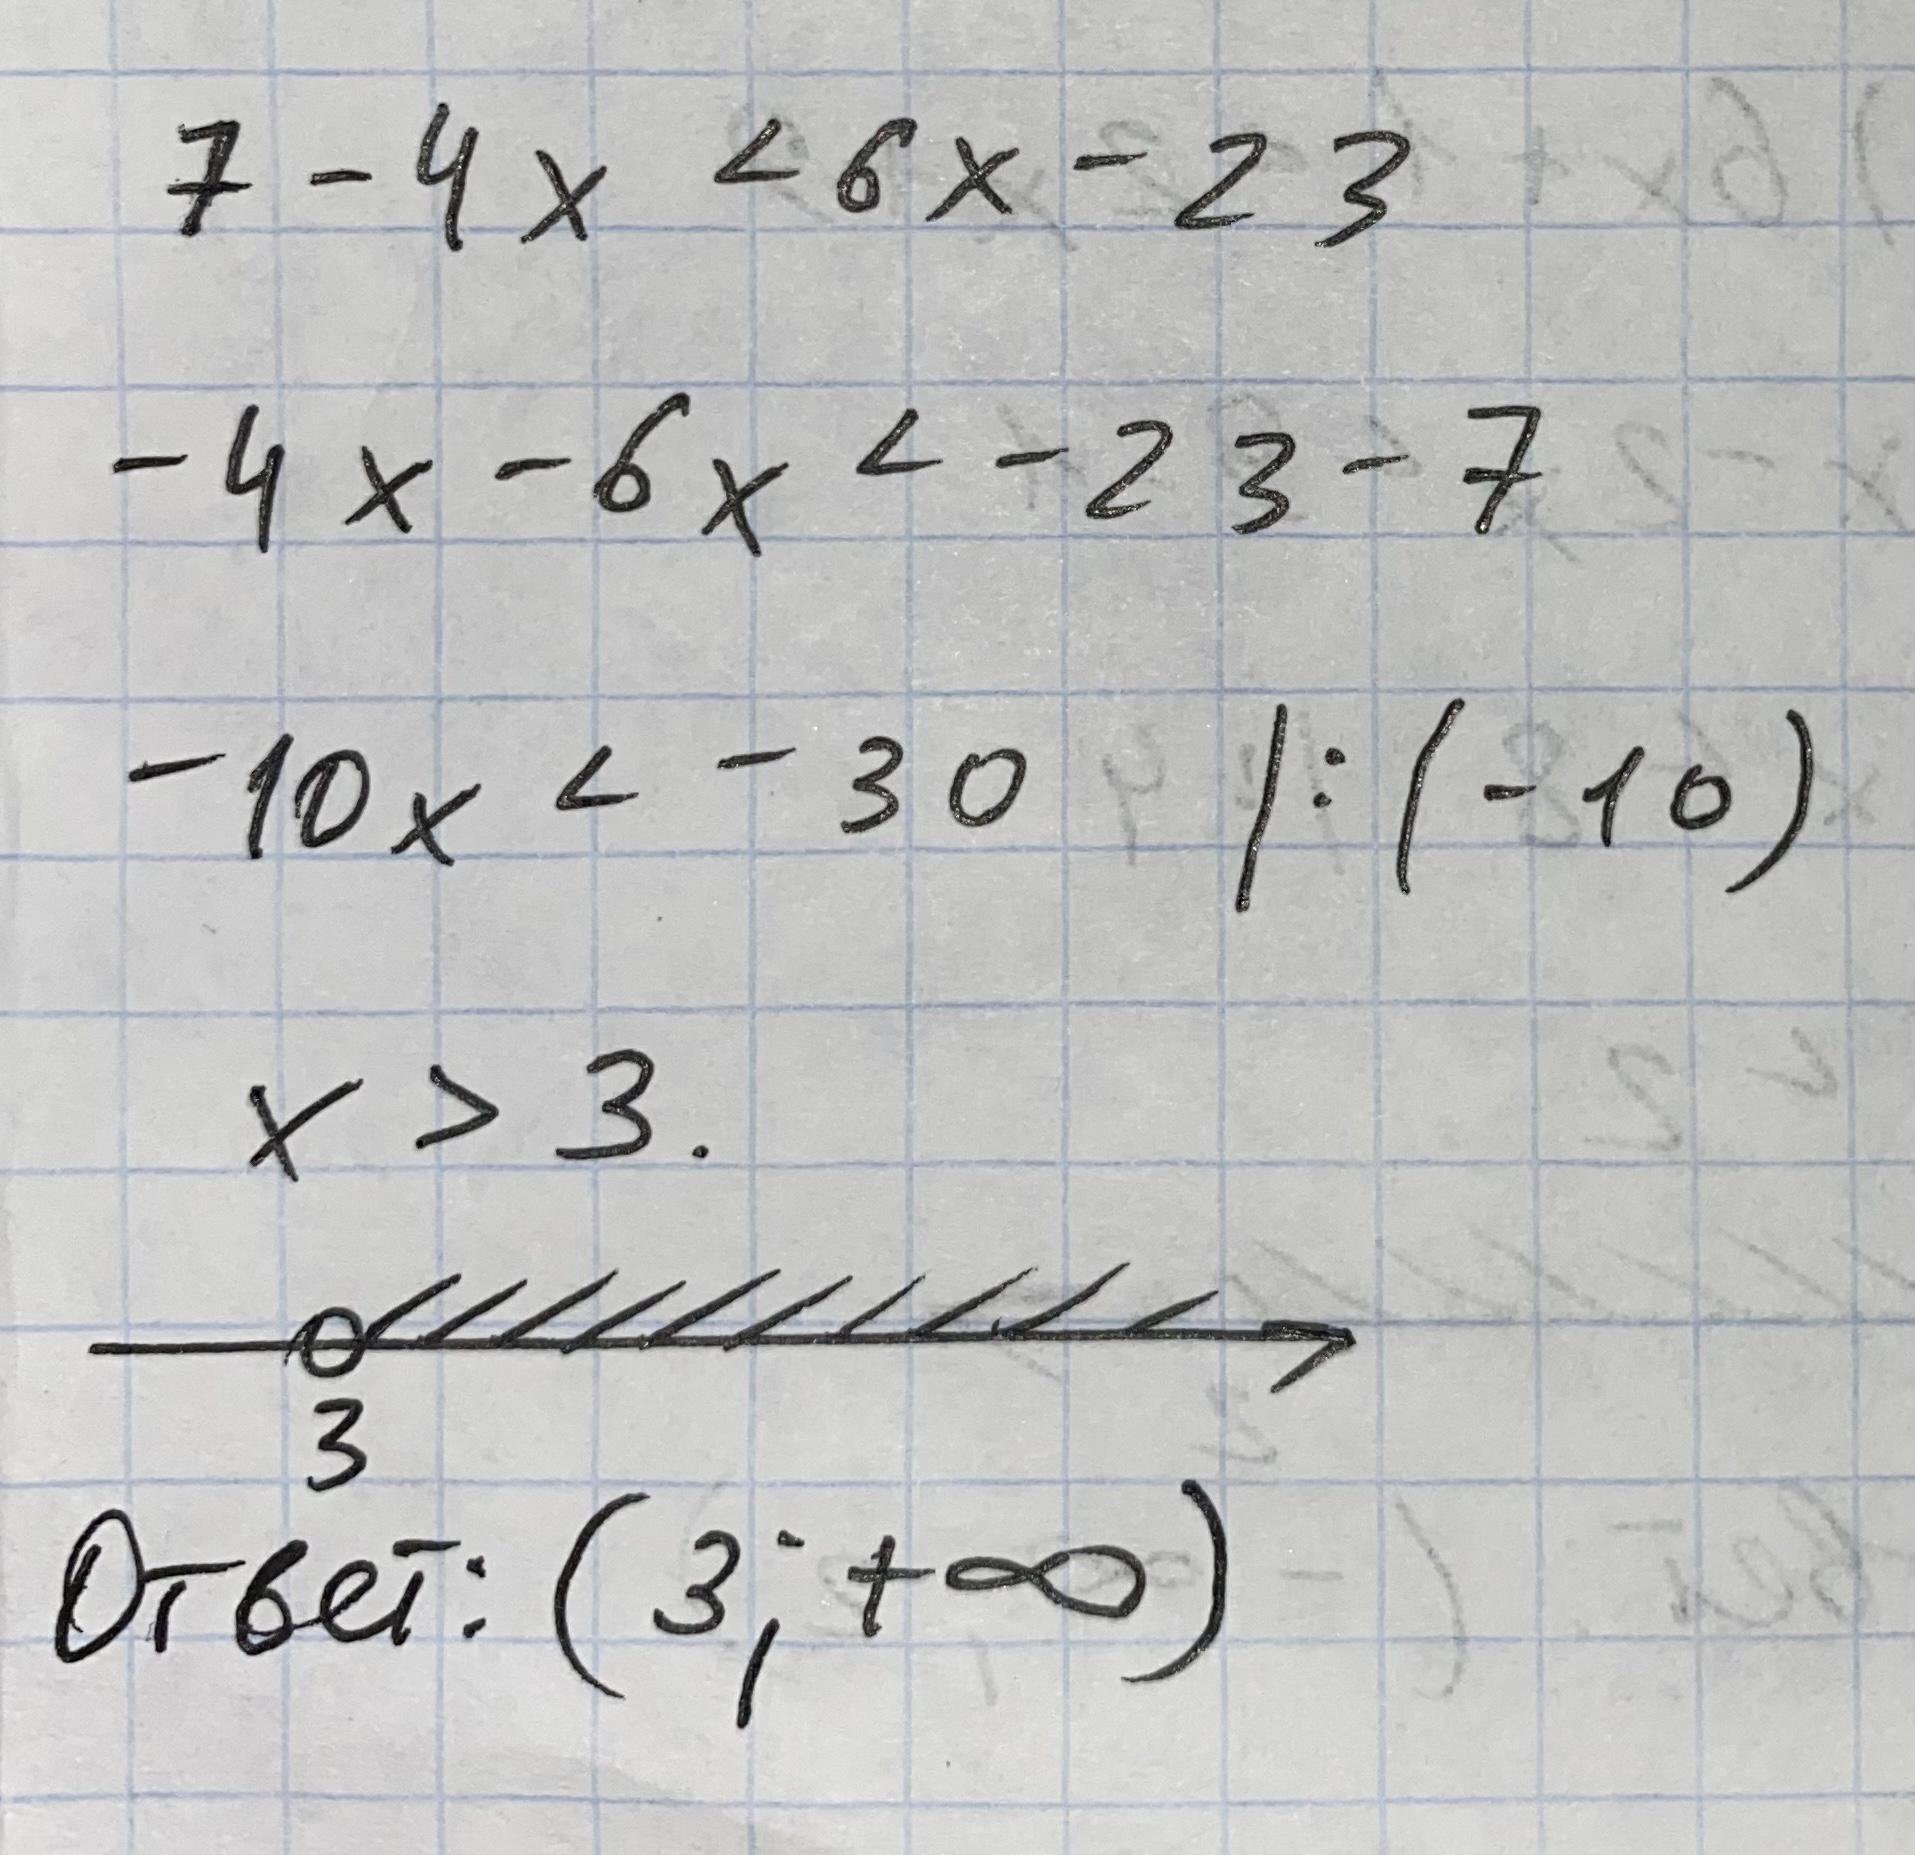 7 - 4x < 6x - 23
-4x - 6x < -23 - 7
-10x < -30 |:(-10)
x > 3.
3
Ответ: (3; +∞)